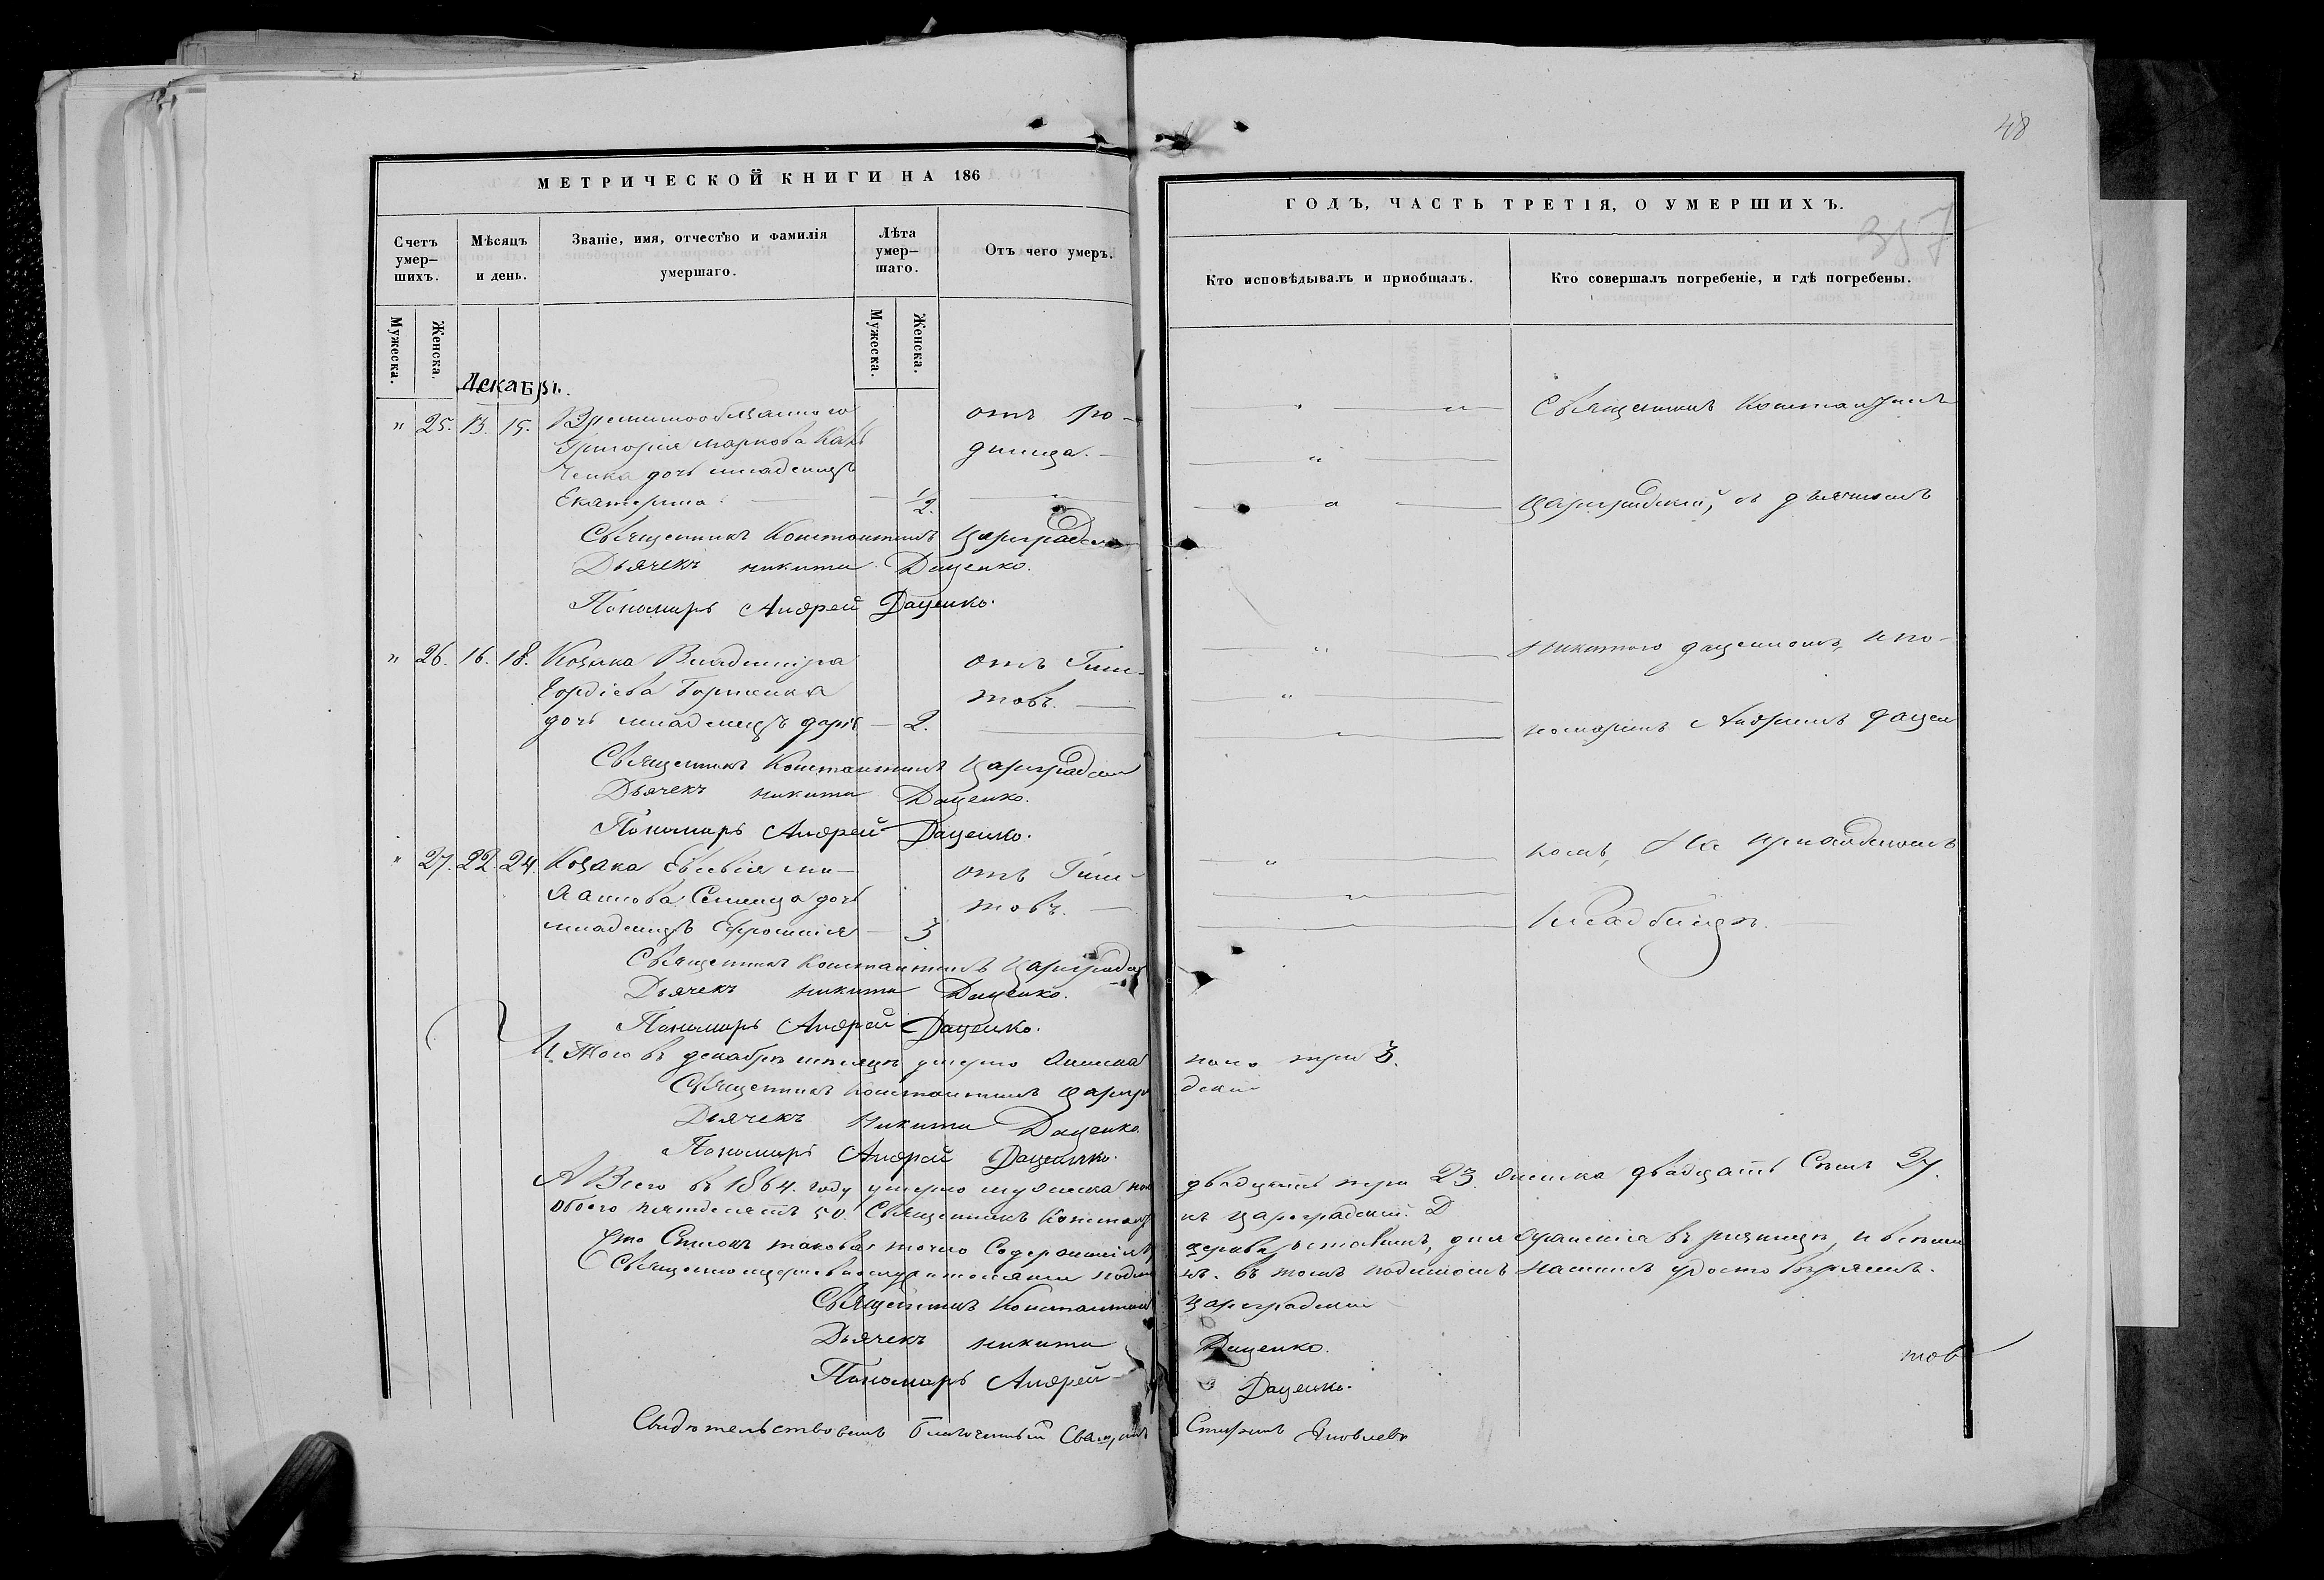 48
МЕТРИЧЕСКОЙ КНИГИ НА 186
ГОДЪ, ЧАСТЬ ТРЕТІЯ, О УМЕРШИХЪ.
357
Счетъ умер–шихъ.
Мѣсяцъ и день.
Званіе, имя, отчество и фамилія умершаго.
Лѣта умер–шаго.
Отъ чего умеръ.
Кто исповѣдывалъ и пріобщалъ.
Кто совершалъ погребеніе, и гдѣ погребены.
Мужеска.
Женска.
Мужеска.
Женска.
Декабрь.
" 25. 13. 15. Временнообязаннаго
Григорія Маркова
ченка дочь младенецъ
Екатерина. 1/2.
отъ ро-
димца.
Священникъ Константинъ Цареградскій
Дьячекъ Никита Даценко.
Пономарь Андрей Даценко.
" 26. 16. 18. Козака Владиміра
Гордіева
дочь младенецъ Дарія 2.
отъ
Священникъ Константинъ Цареградскій
Дьячекъ Никита Даценко.
Пономарь Андрей Даценко.
" 27. 22. 24. Козака Евсевія
дочь
младенецъ Ефросинія 3
отъ
Священникъ Константинъ Цареград
Дьячекъ Никита Даценко.
Пономарь Андрей Даценко.
Священникъ Константинъ
Цареградскій, съ дьячкомъ
Никитою Даценкомъ, и по-
номаремъ Андреемъ Дацен
комъ, На приходскомъ
кладбищѣ.
Итого въ декабрѣ мѣсяцѣ умерло женска пола три 3.
Священникъ Константинъ Цареградскій
Дьячекъ Никита Даценко
Пономарь Андрей Даценко.
А Всего въ 1864. году умерло мужеска пола двадцать три 23. женска двадцать Семь 27.
Обоего пятьдесятъ 50. Священникъ Цареградскій.
Что Списокъ таковъ точно Содержаніемъ для храненія въ ризницѣ, и всѣми
въ томъ подписомъ нашимъ удостовѣряемъ.
Священникъ Константинъ Цареградскій
Дьячекъ Никита Даценко.
Пономарь Андрей Даценко.
тов
Свидѣтельствовалъ Благочинный Священникъ Яковлевъ